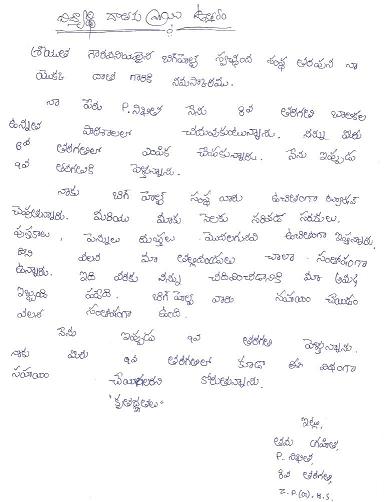 విద్యార్థి దాతకు వ్రాయు ఉత్తరం
గౌరవనీయులైన బిగ్‌హెల్ప్ స్వచ్ఛంద సంస్థ తరపున నా
యొక్క దాత గారికి నమస్కారము.
నా పేరు P. నిఖిత నేను 8వ తరగతి బాలికల
ఉన్నత పాఠశాలలో చదువుకుంటున్నాను. నన్ను మీరు
8వ తరగతిలో ఎంపిక చేసుకున్నారు. నేను ఇప్పుడు
9వ తరగతికి వెళ్తున్నాను.
నాకు బిగ్ హెల్ప్ సంస్థ వారు ఉచితంగా ట్యూషన్
చెప్తున్నారు. మరియు మాకు నెలకు సరిపడ సరుకులు,
పుస్తకాలు, పెన్నులు దుస్తులు మొదలగునవి ఉచితంగా ఇస్తున్నారు.
వలన మా తల్లిదండ్రులు చాలా సంతోషంగా
ఉన్నారు. ఇది వరకు నన్ను చదివించడానికి మా అమ్మ
ఇబ్బంది పడ్డది. బిగ్ హెల్ప్ వారు సహాయం చేయడం
వలన సంతోషంగా ఉంది.
నేను ఇప్పుడు 9వ తరగతి వెళ్తున్నాను.
నాకు మీరు 9వ తరగతిలో కూడా ఈ విధంగా
సహాయం చేయగలరని కోరుతున్నాను.
"కృతజ్ఞతలు"
ఇట్లు,
తమ గ్రహీత,
P. నిఖిత,
8వ తరగతి,
Z.P.(G). H.S.